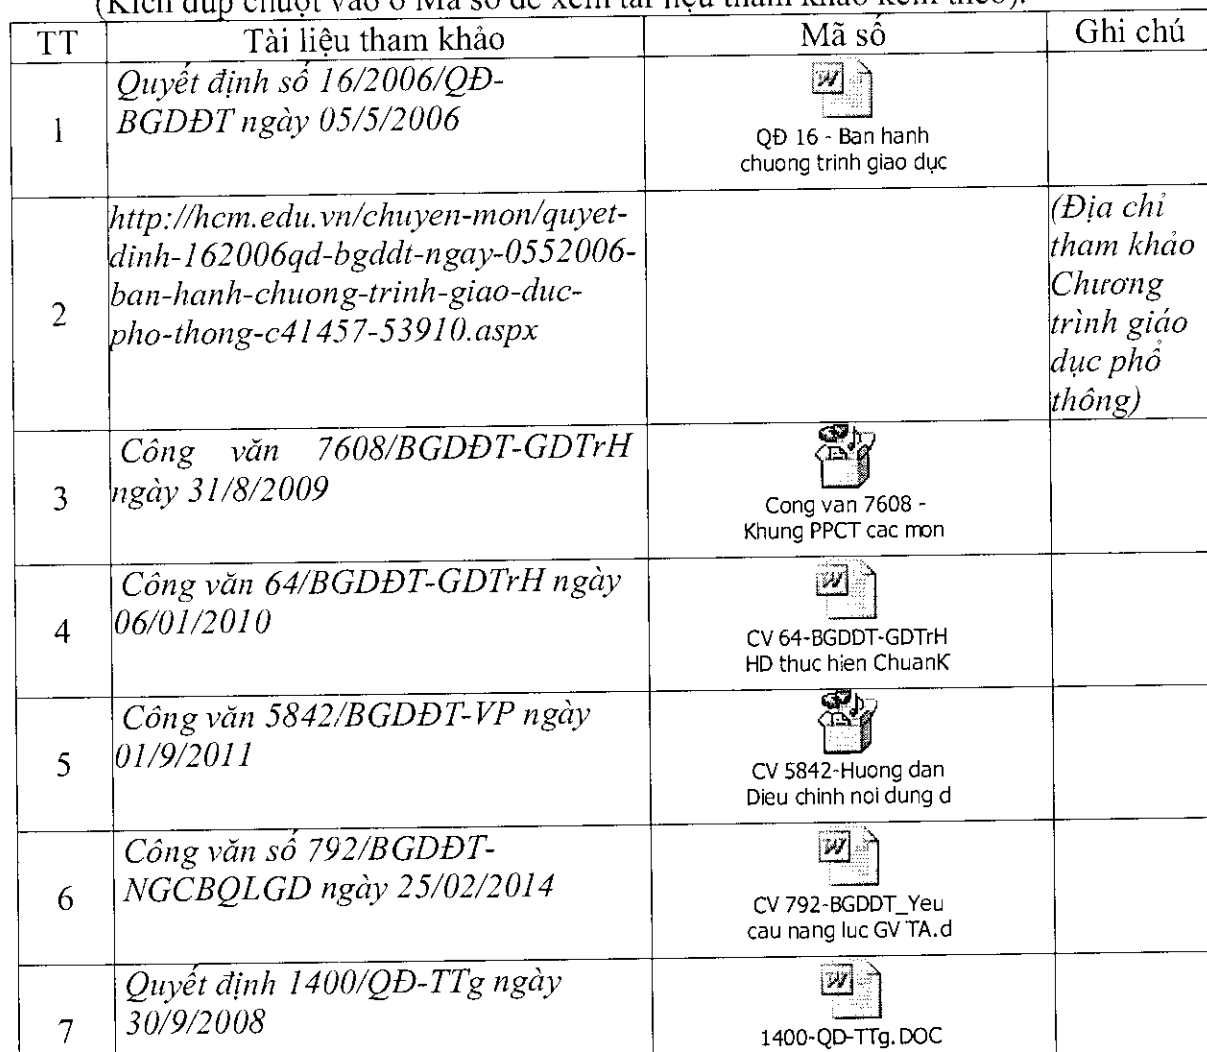 (Kích đúp chuột vào ô Mã số để xem tài liệu tham khảo kèm theo).
TT Tài liệu tham khảo Mã số Ghi chú
1
Quyết định số 16/2006/QĐ-
BGDĐT ngày 05/5/2006
QĐ 16 - Ban hanh
chuong trinh giao dục
2
http://hcm.edu.vn/chuyen-mon/quyet-
dinh-162006qd-bgddt-ngay-0552006-
ban-hanh-chuong-trinh-giao-duc-
pho-thong-c41457-53910.aspx
(Địa chỉ
tham khảo
Chương
trình giáo
dục phổ
thông)
3
Công văn 7608/BGDĐT-GDTrH
ngày 31/8/2009
Cong van 7608 -
Khung PPCT cac mon
4
Công văn 64/BGDĐT-GDTrH ngày
06/01/2010
CV 64-BGDDT-GDTrH
HD thuc hien ChuanK
5
Công văn 5842/BGDĐT-VP ngày
01/9/2011
CV 5842-Huong dan
Dieu chinh noi dung d
6
Công văn số 792/BGDĐT-
NGCBQLGD ngày 25/02/2014
CV 792-BGDDT_Yeu
cau nang luc GV TA.d
7
Quyết định 1400/QĐ-TTg ngày
30/9/2008
1400-QD-TTg.DOC